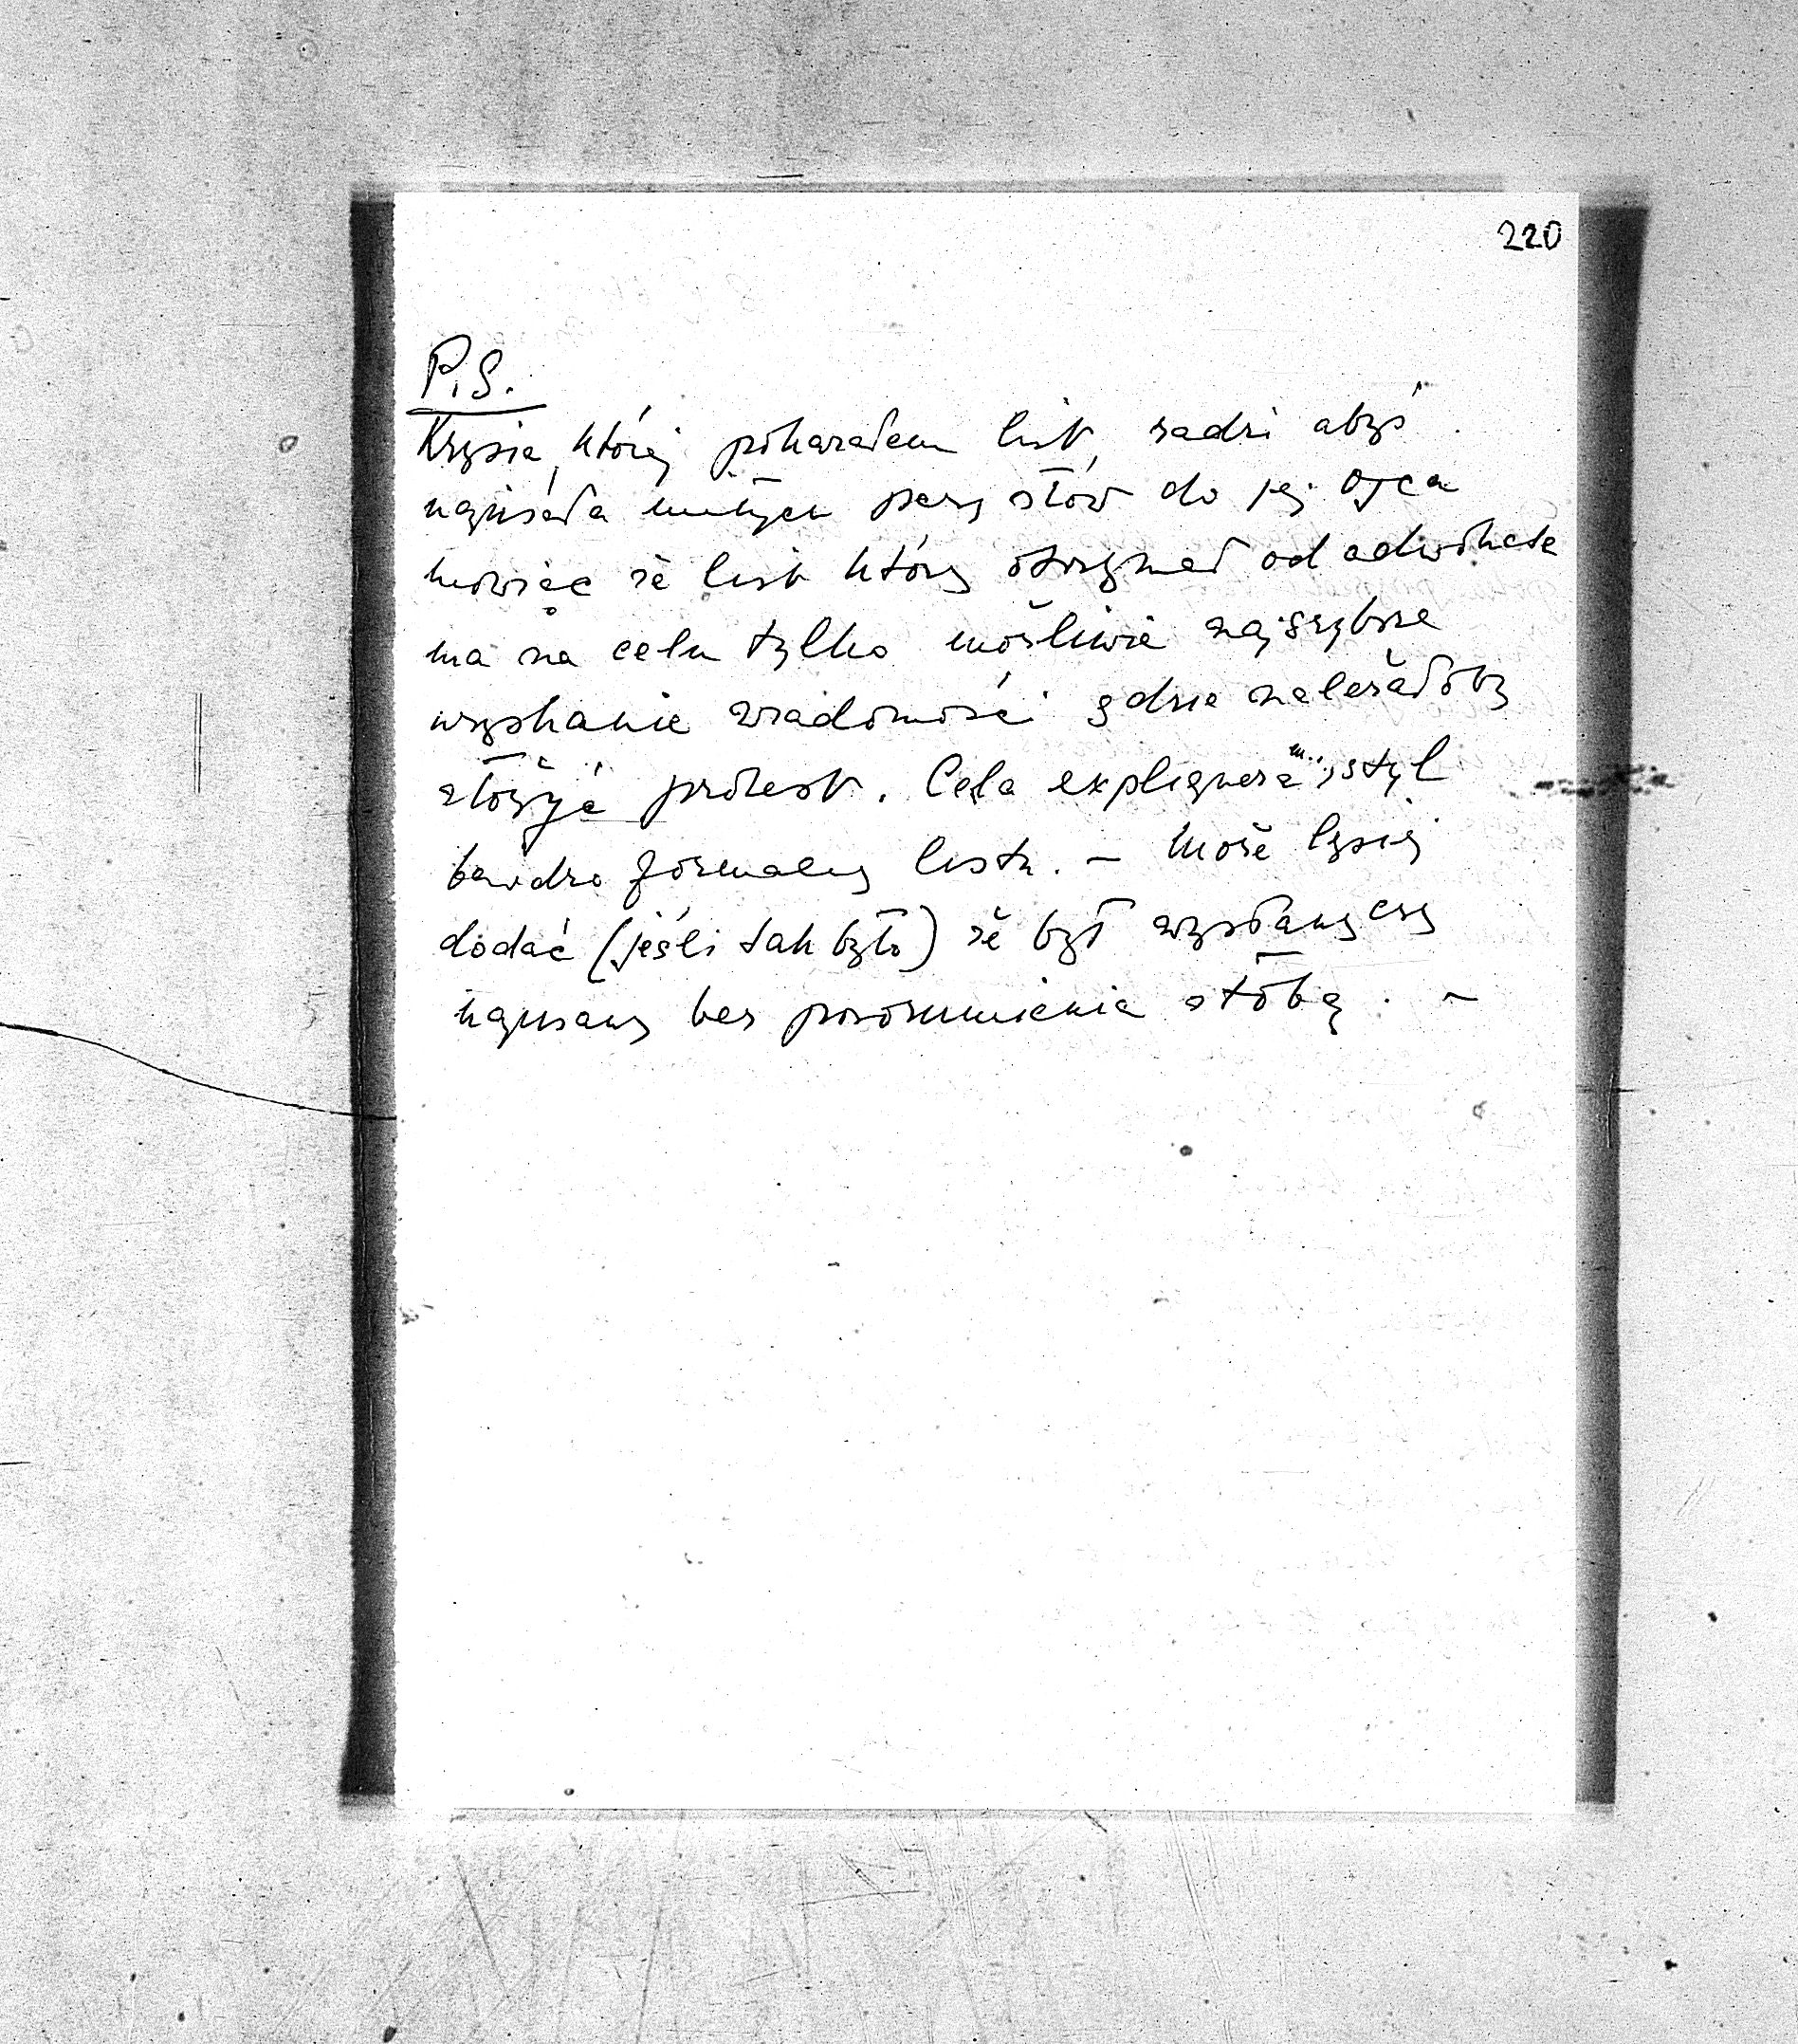 220
P.S.
Krysia, której pokazałem list, radzi abyś
napisała miłych parę słów do jej Ojca
mówiąc że list który otrzymał od adwokata
ma na celu tylko możliwie najszybsze
uzyskanie wiadomości gdzie należałoby
złożyć protest. Cela expliquera styl
bardzo formalny listu. – Może lepiej
dodać (jeśli tak było) że był wysłany czy
napisany bez porozumienia z tobą. –